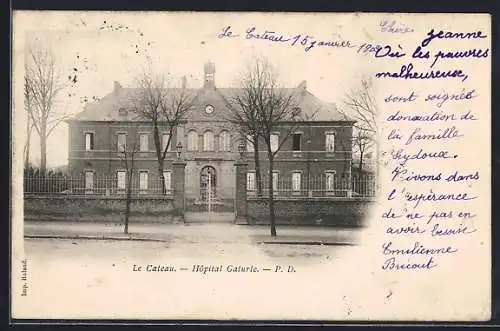 Le Cateau 15 janvier 190
Chère Jeanne
Où les pauvres
malheureuse,
sont soignés
donnation de
la famille
Seydoux.
Vivons dans
l'espérance
de ne pas en
avoir besoin
Emilienne
Bricout
Le Cateau. — Hôpital Gaturle. — P. D.
Imp. Roland.